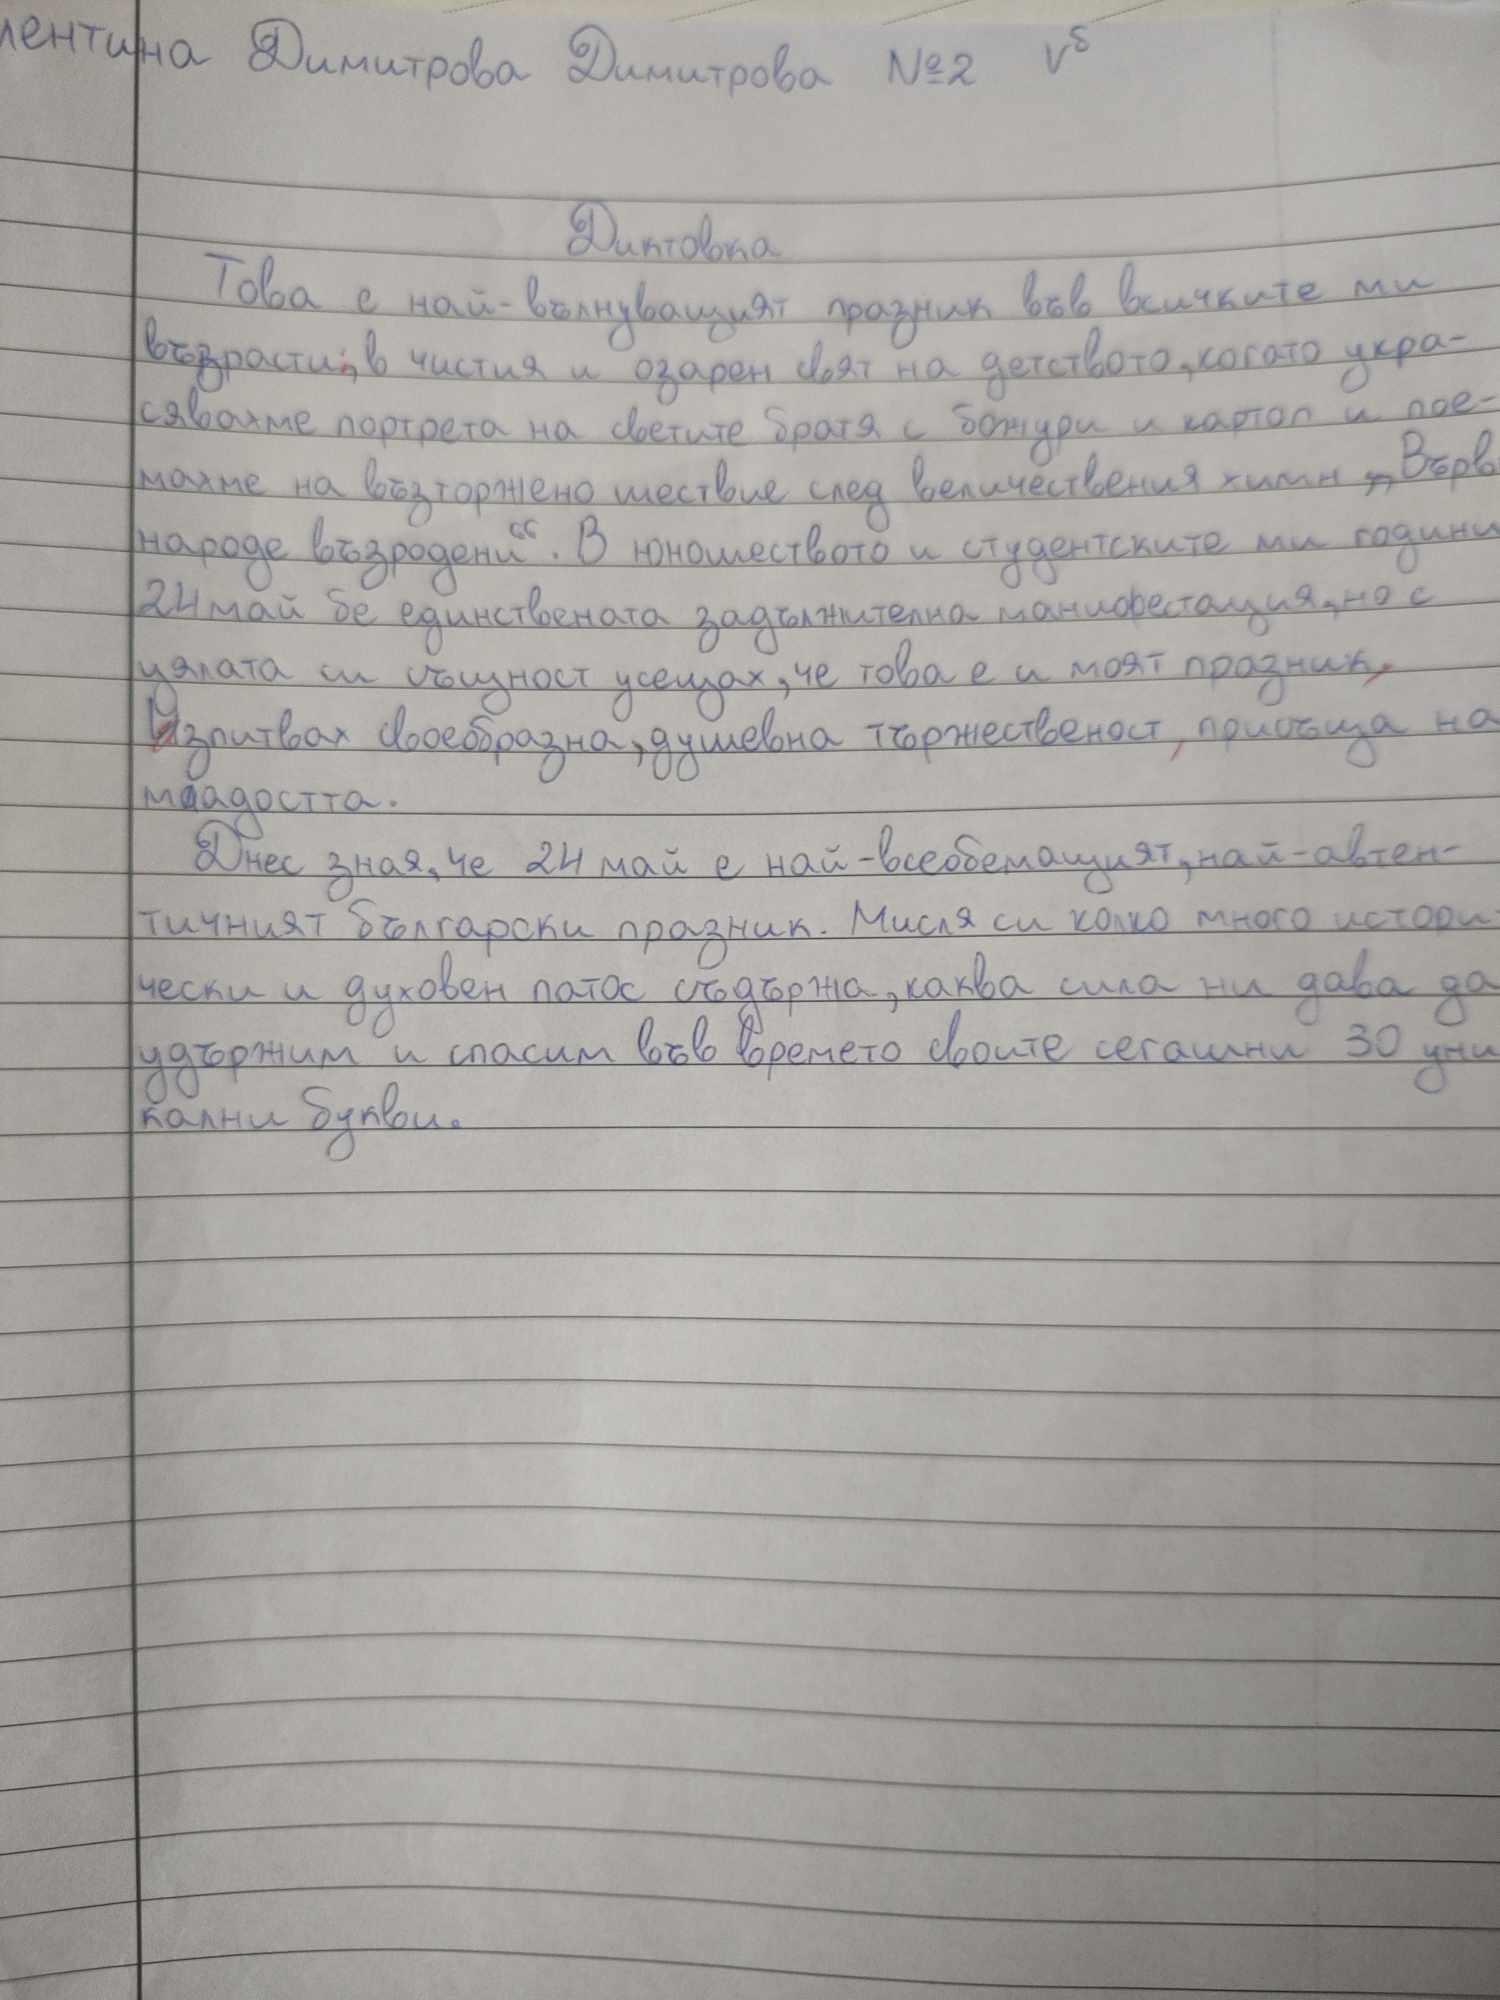 лентина Димитрова Димитрова №2 Vб
Диктовка
Това е най-вълнуващият празник във всичките ми
възрасти; в чистия и озарен свят на детството, когато укра-
сявахме портрета на светите братя с божури и картоп и пое-
махме на възторжено шествие след величествения химн „Върви
народе възродени“. В юношеството и студентските ми години
24 май бе единствената задължителна манифестация, но с
цялата си същност усещах, че това е и моят празник,
Изпитвах своеобразна, душевна тържественост, присъща на
младостта.
Днес зная, че 24 май е най-всеобемащият, най-автен-
тичният български празник. Мисля си колко много истори-
чески и духовен патос съдържа, каква сила ни дава да
удържим и спасим във времето своите сегашни 30 уни
кални букви.